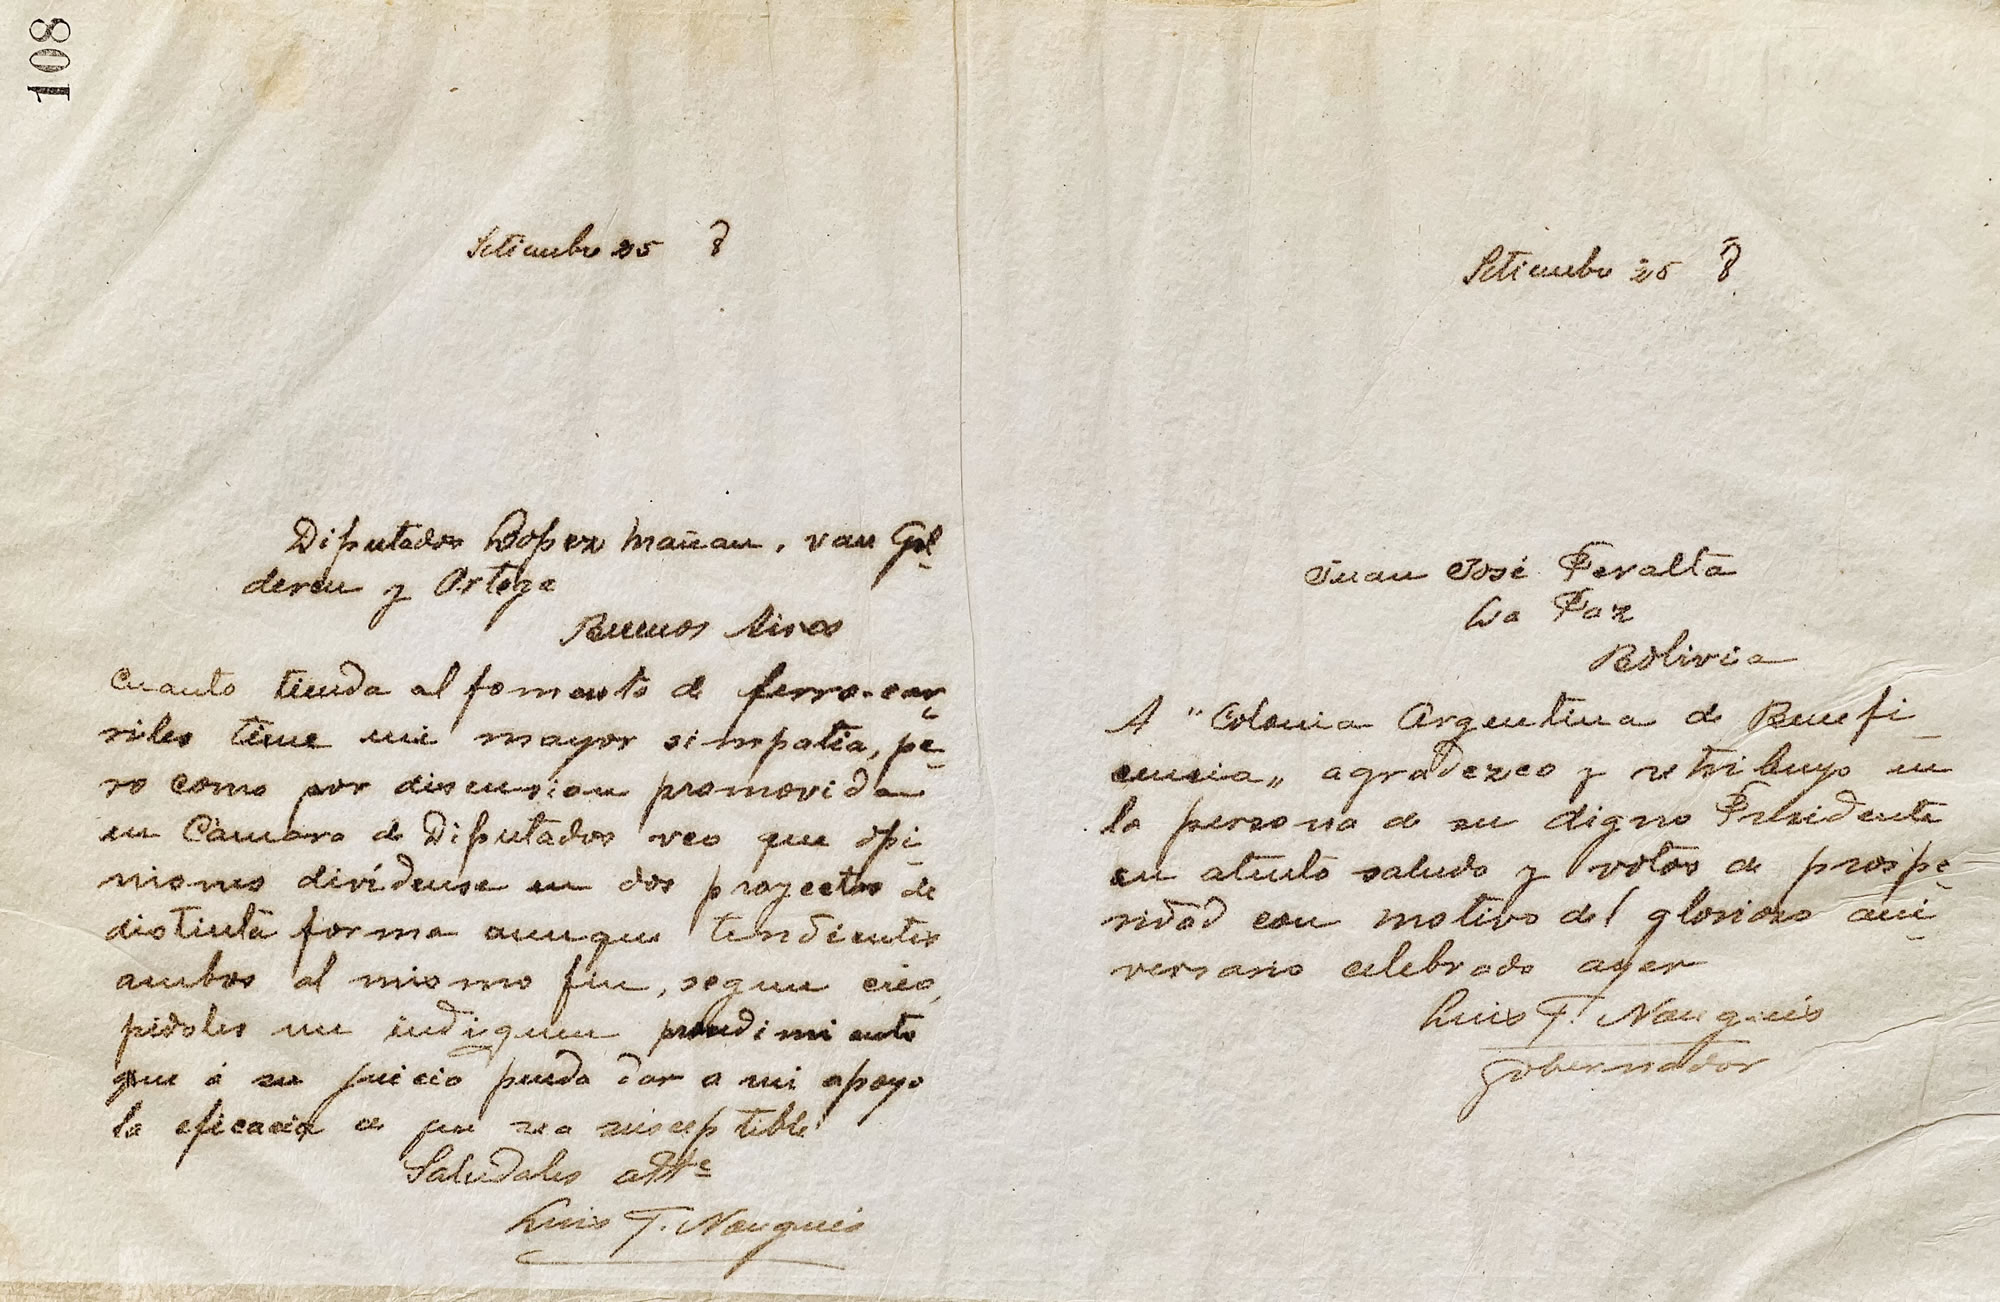 108
Setiembre 25 8
Diputados Lopez Mañan, van Gel-
deren y Ortega
Buenos Aires
Cuanto tienda al fomento de ferro-car-
riles tiene mi mayor simpatia, pe-
ro como por discusion promovida
en Cámara de Diputados veo que opi-
niones divídense en dos proyectos de
distinta forma aunque tendientes
ambos al mismo fin, segun creo,
pidoles me indiquen
que á su juicio pueda dar a mi apoyo
la eficacia de que sea susceptible
Saludales attte
Luis F. Nougués
Setiembre 25 8
Juan José Peralta
La Paz
Bolivia
A "Colonia Argentina de Benefi-
cencia„ agradezco y retribuyo en
la persona de su digno Presidente
su atento saludo y votos de prospe-
ridad con motivo del glorioso ani-
versario celebrado ayer
Luis F. Nougués
Gobernador